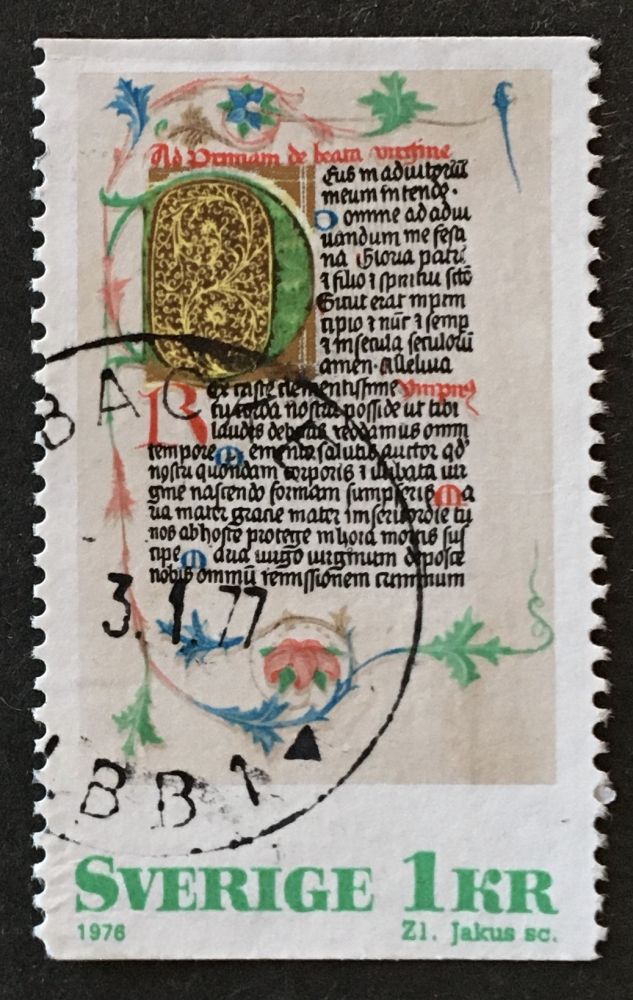 Ad Primam de beata virgine
Deus in adiutoriū
meum intende.
Domine ad adiu
uandum me festi
na Gloria patri
⁊ filio ⁊ spiritui scto
Sicut erat in prin
cipio ⁊ nūc ⁊ semp
⁊ in secula seculorū
amen. Alleluia
Rex caste clementissime
tu corda nostra posside ut tibi
laudes debitas reddamus omni
tempore Memento salutis auctor qd
nostri quondam corporis ⁊ illibata uir
gine nascendo formam sumpseris Ma
ria mater gracie mater misericordie tu
nos ab hoste protege in hora mortis sus
cipe Maria uirgo uirginum deposce
nobis omniū remissionem criminum
BAC
3.1.77
BB 1
SVERIGE 1 KR
1976 Zl. Jakus sc.